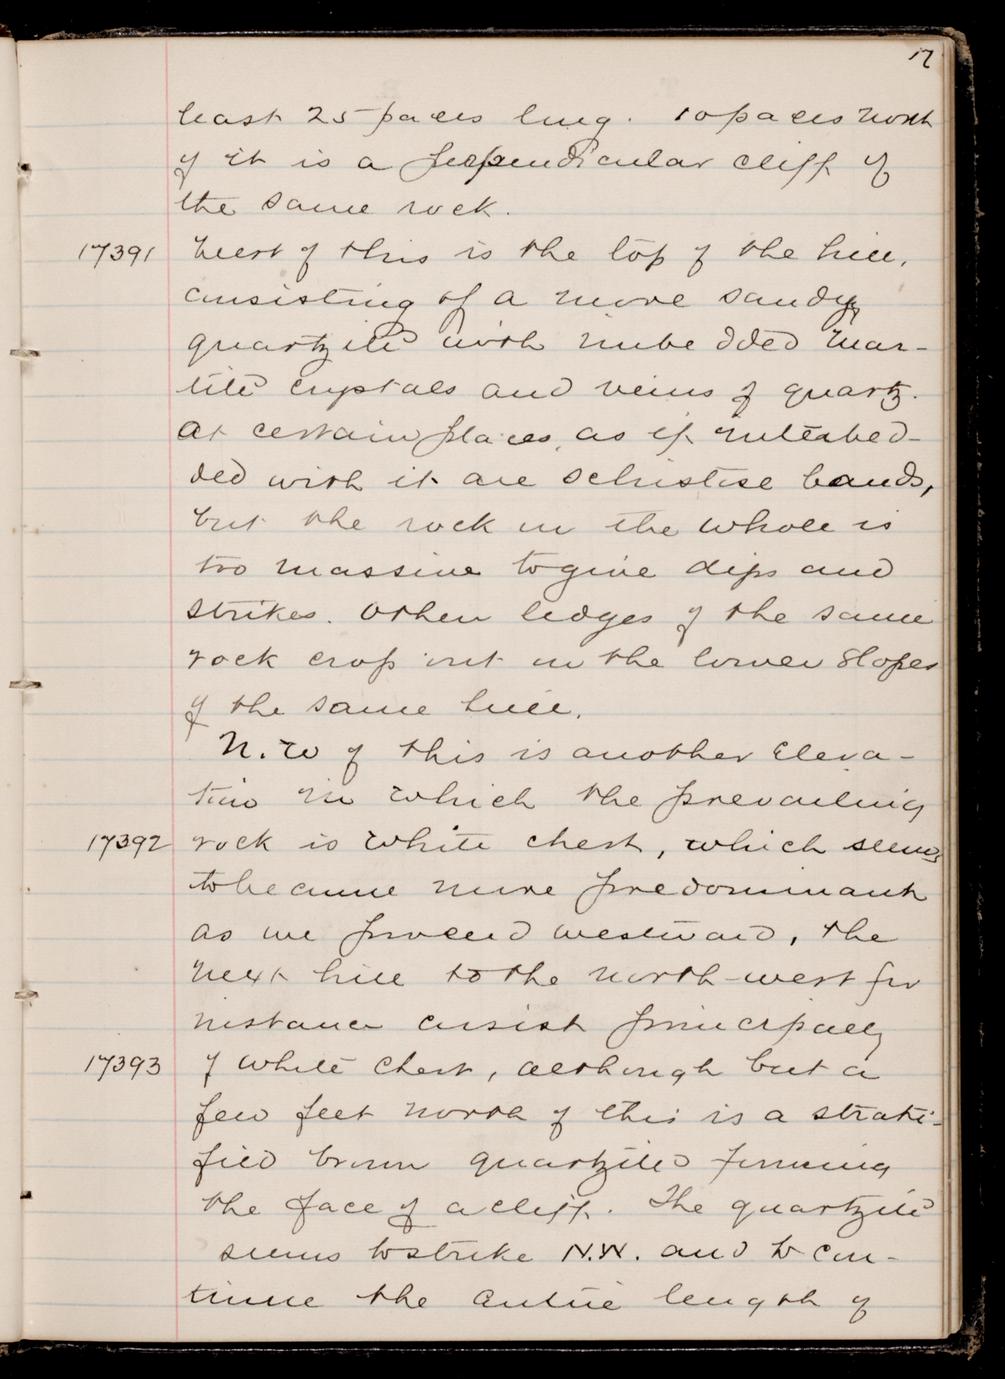 17
least 25 paces long. 10 paces north
of it is a perpendicular cliff of
the same rock.
17391 West of this is the top of the hill,
consisting of a more sandy
quartzite with imbedded mar-
tite crystals and veins of quartz.
At certain places, as if interbed-
ded with it are schistose bands,
but the rock on the whole is
too massive to give dips and
strikes. Other ledges of the same
rock crop out on the lower slopes
of the same hill.
N.W of this is another eleva-
tion in which the prevailing
17392 rock is white chert, which seems
to become more predominant
as we proceed westward, the
next hill to the north-west for
instance consist principally
17393 of white chert, although but a
few feet north of this is a strati-
fied brown quartzite forming
the face of a cliff. The quartzite
seems to strike N.W. and to con-
tinue the entire length of